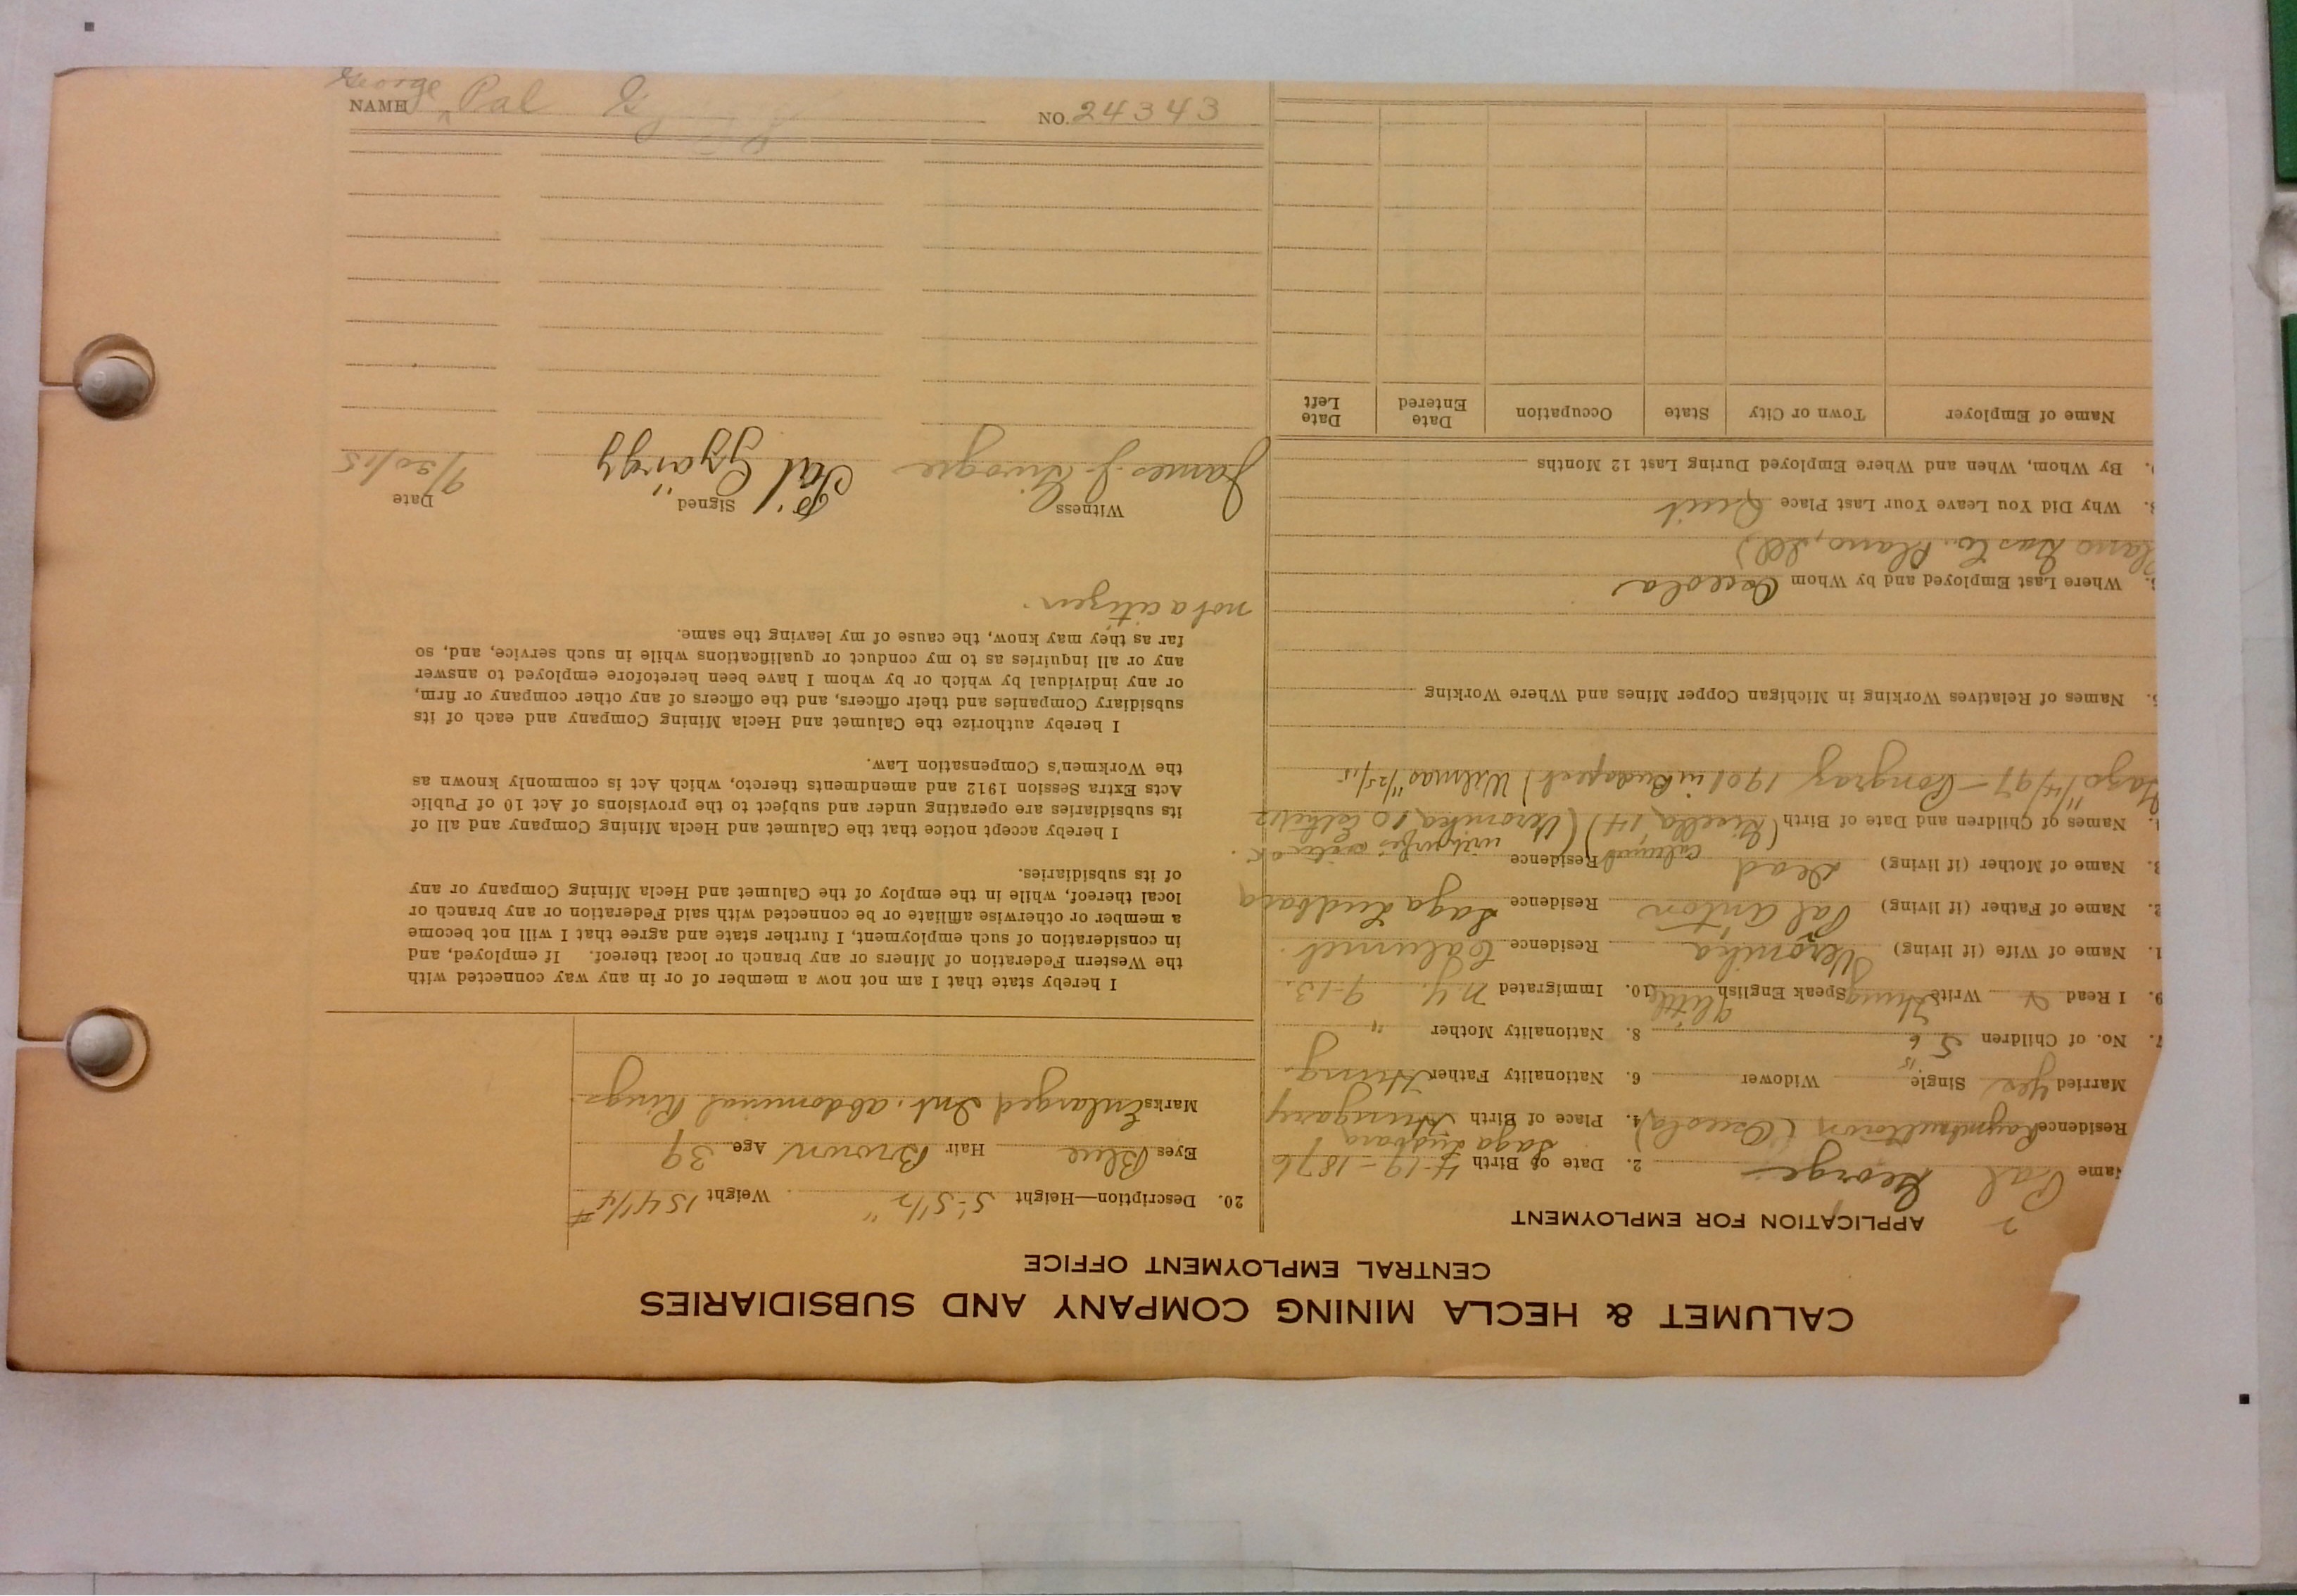 CALUMET & HECLA MINING COMPANY AND SUBSIDIARIES
CENTRAL EMPLOYMENT OFFICE
APPLICATION FOR EMPLOYMENT
Name Pal George 2. Date of Birth 4-19-1876
Residence Raymbaultown (Osceola) 4. Place of Birth Hungary
Married Yes Single Widower 6. Nationality Father Hung.
7. No. of Children 5 6 8. Nationality Mother "
9. I Read Write Hung Speak English little 10. Immigrated N.Y. 9-13.
1. Name of Wife (if living) Veronika Residence Calumet.
2. Name of Father (if living) Pal Anton Residence
3. Name of Mother (if living) Dead Residence
4. Names of Children and Date of Birth
1901 in Budapest) Wilmas 11/25/15
5. Names of Relatives Working in Michigan Copper Mines and Where Working
Where Last Employed and by Whom Osceola
Plano, Ill)
8. Why Did You Leave Your Last Place Quit
9. By Whom, When and Where Employed During Last 12 Months
Name of Employer Town or City State Occupation Date Entered Date Left
20. Description—Height 5'-5 1/2" Weight 154 1/4 #
Eyes Blue Hair Brown Age 39
Marks Enlarged Int. abdominal Rings.
I hereby state that I am not now a member of or in any way connected with
the Western Federation of Miners or any branch or local thereof. If employed, and
in consideration of such employment, I further state and agree that I will not become
a member or otherwise affiliate or be connected with said Federation or any branch or
local thereof, while in the employ of the Calumet and Hecla Mining Company or any
of its subsidiaries.
I hereby accept notice that the Calumet and Hecla Mining Company and all of
its subsidiaries are operating under and subject to the provisions of Act 10 of Public
Acts Extra Session 1912 and amendments thereto, which Act is commonly known as
the Workmen's Compensation Law.
I hereby authorize the Calumet and Hecla Mining Company and each of its
subsidiary Companies and their officers, and the officers of any other company or firm,
or any individual by which or by whom I have been heretofore employed to answer
any or all inquiries as to my conduct or qualifications while in such service, and, so
far as they may know, the cause of my leaving the same.
not a citizen.
Witness Signed Date
James J. Pál György 9/20/15
NAME George Pal NO. 24343